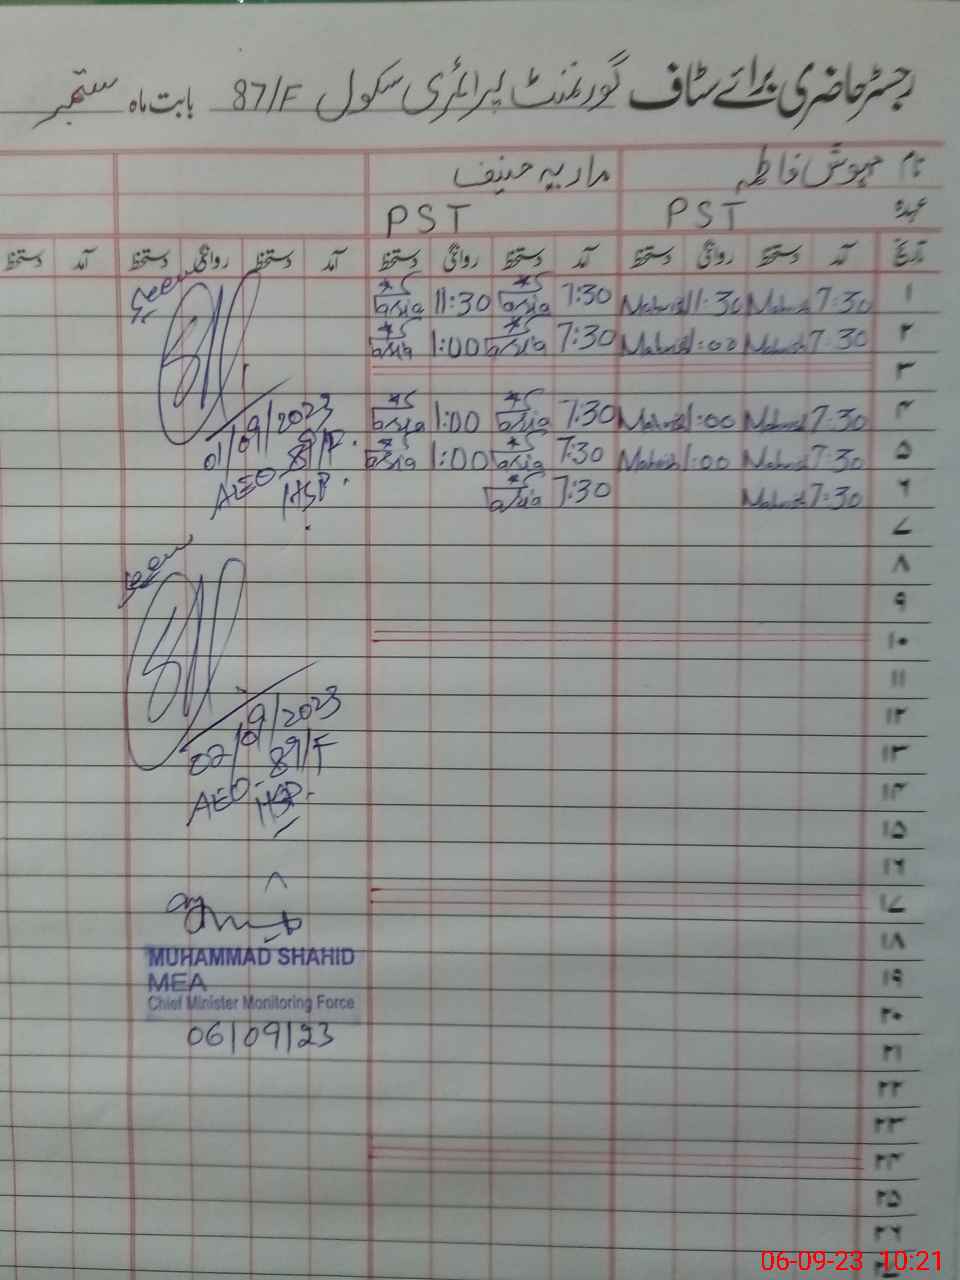 رجسٹر حاضری برائے سٹاف گورنمنٹ پرائمری سکول 87/F بابت ماہ ستمبر
نام مہوش فاطمہ ماریہ حنیف
عہدہ PST PST
تاریخ آمد دستخط روانگی دستخط آمد دستخط روانگی دستخط آمد دستخط روانگی دستخط آمد دستخط
۱ 7:30 11:30 7:30 11:30 Seen
۲ 7:30 1:00 7:30 1:00
۳
۴ 7:30 1:00 7:30 1:00
۵ 7:30 1:00 7:30 1:00
۶ 7:30 7:30
01/09/2023
AEO 89/F
HSP.
۷
۸
۹
۱۰
۱۱
۱۲
۱۳
۱۴
۱۵
Seen
02/09/2023
AEO 89/F
HSP.
۱۶
۱۷
۱۸
۱۹
۲۰
MUHAMMAD SHAHID
MEA
Chief Minister Monitoring Force
06/09/23
۲۱
۲۲
۲۳
۲۴
۲۵
۲۶
06-09-23 10:21